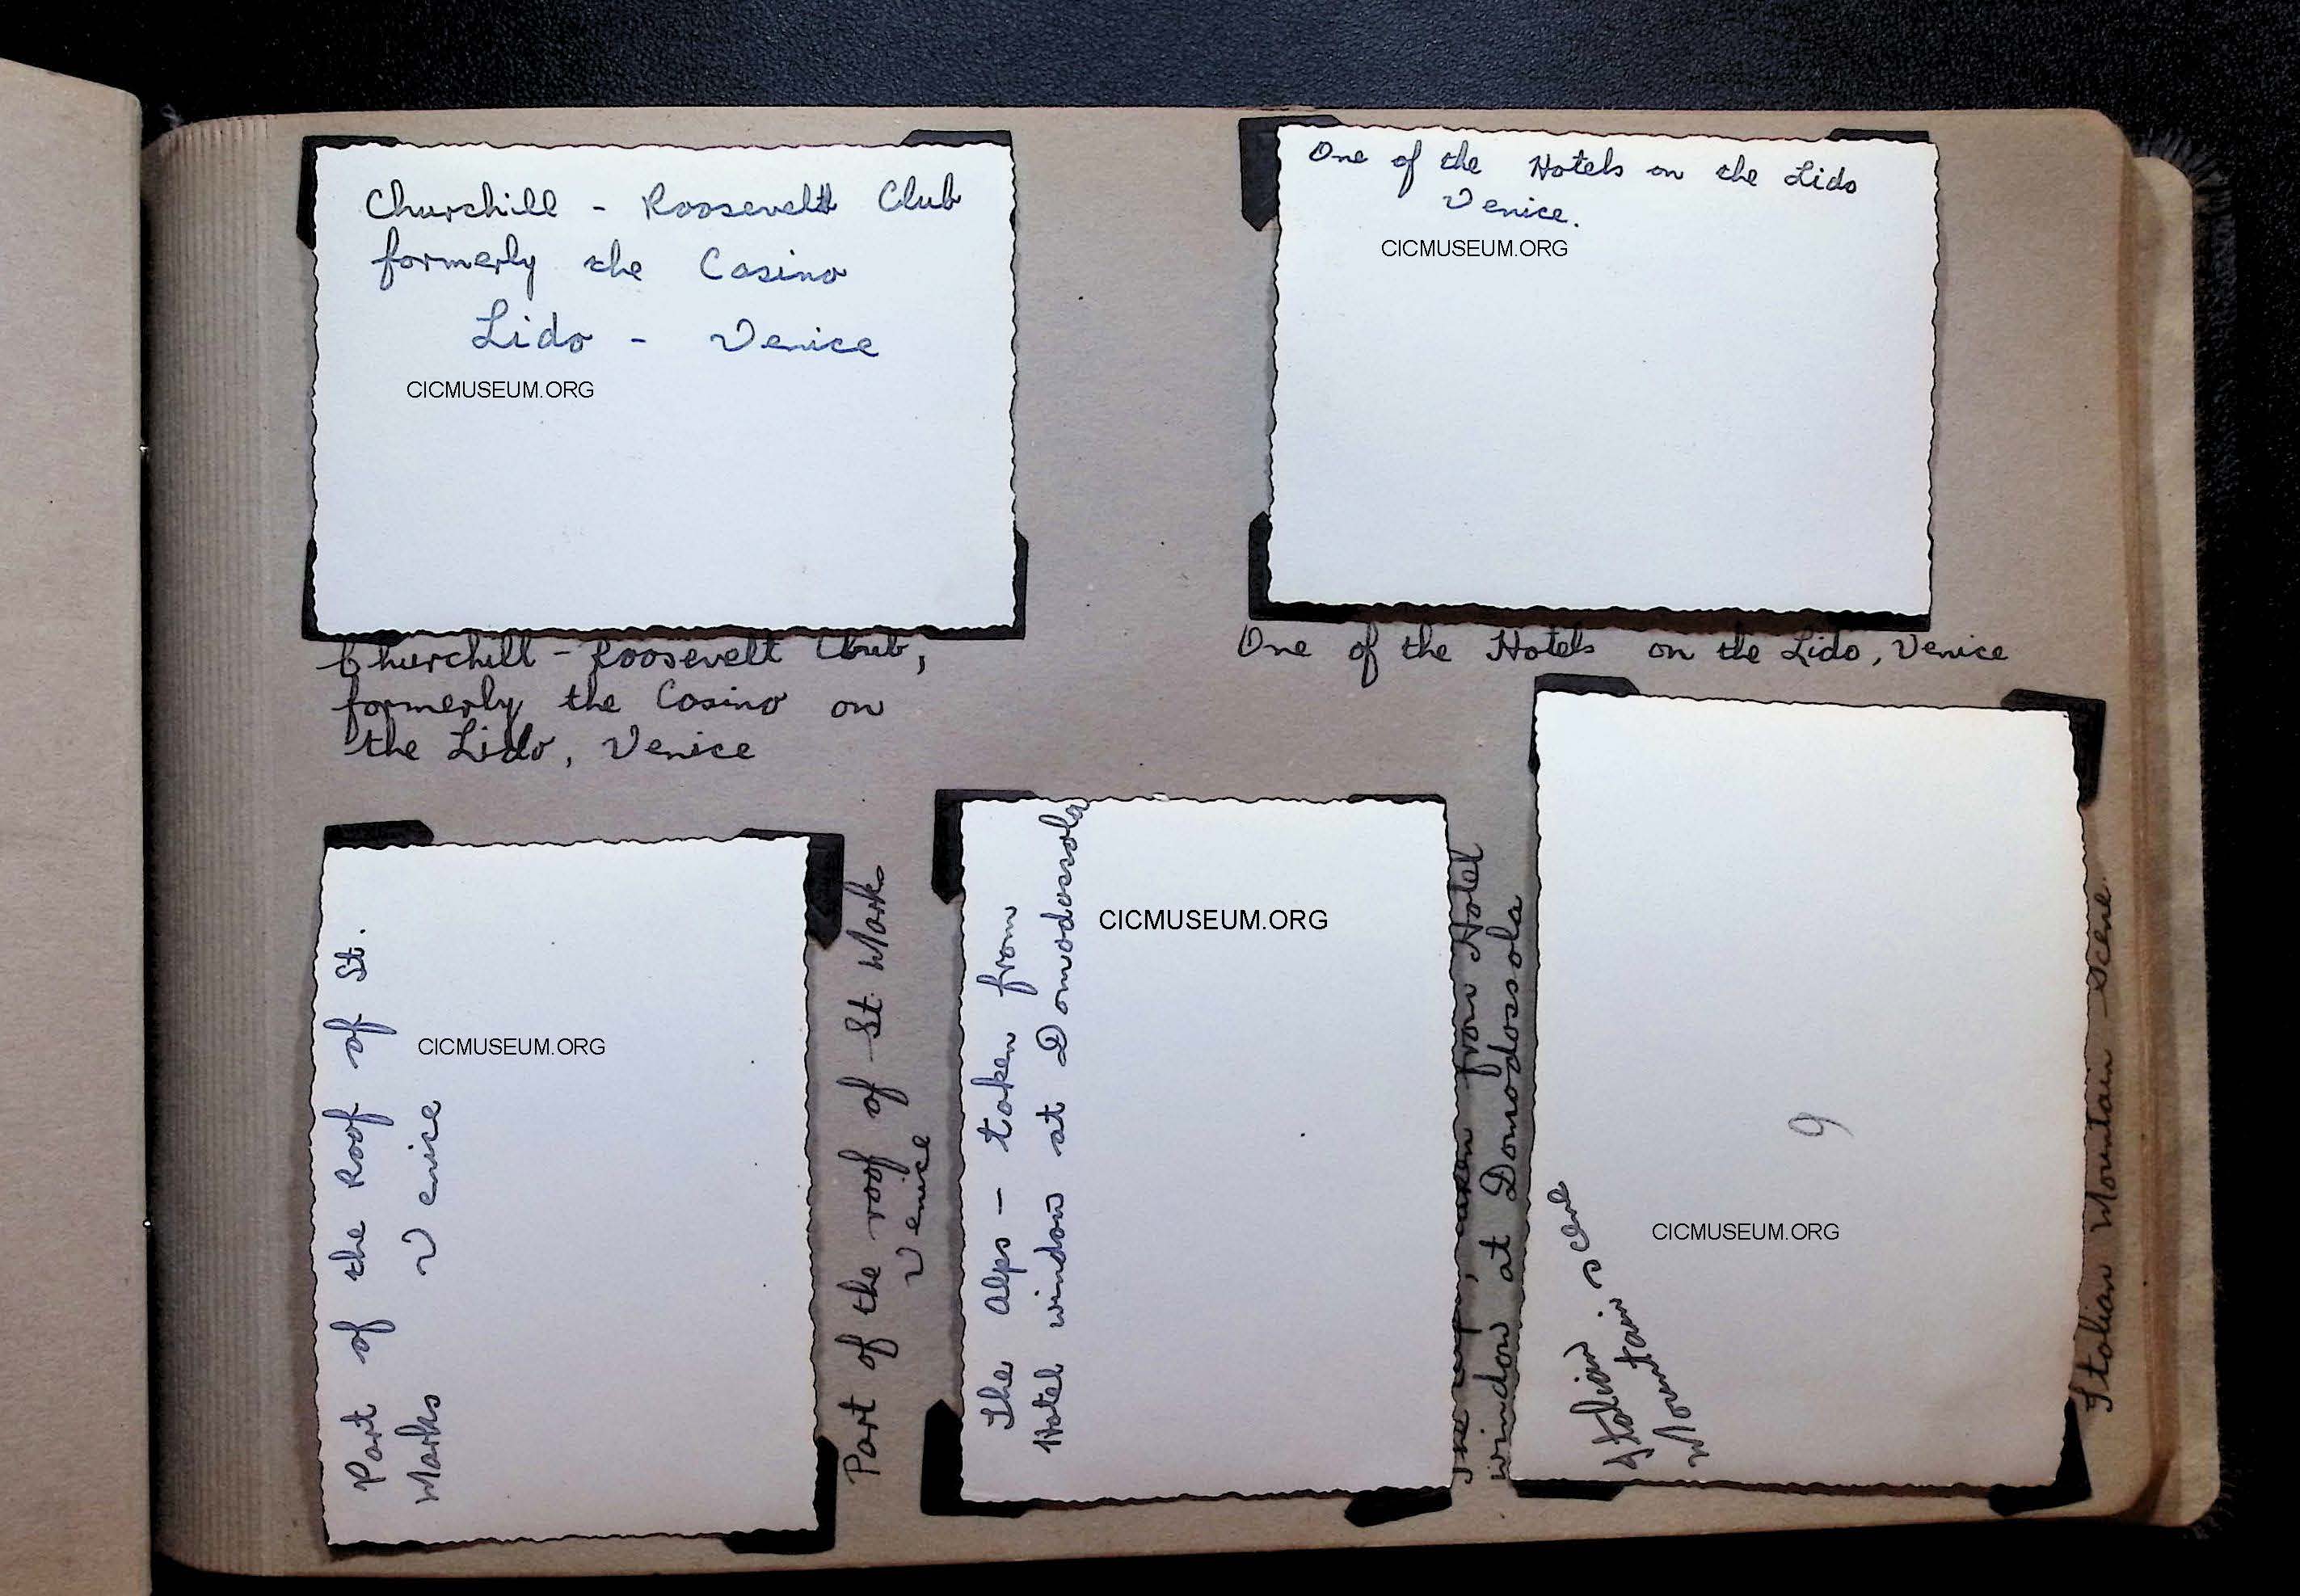 Churchill - Roosevelt Club
formerly the Casino
Lido - Venice
CICMUSEUM.ORG
Churchill - Roosevelt Club,
formerly the Casino on
the Lido, Venice
One of the Hotels on the Lido
Venice.
CICMUSEUM.ORG
One of the Hotels on the Lido, Venice
Part of the Roof of St.
Marks Venice
CICMUSEUM.ORG
Part of the roof of St. Mark
Venice
The Alps - taken from
Hotel window at Domodossola
CICMUSEUM.ORG
The Alps, taken from Hotel
window at Domodossola
Italian
Mountain scene
9
CICMUSEUM.ORG
Italian Mountain Scene.